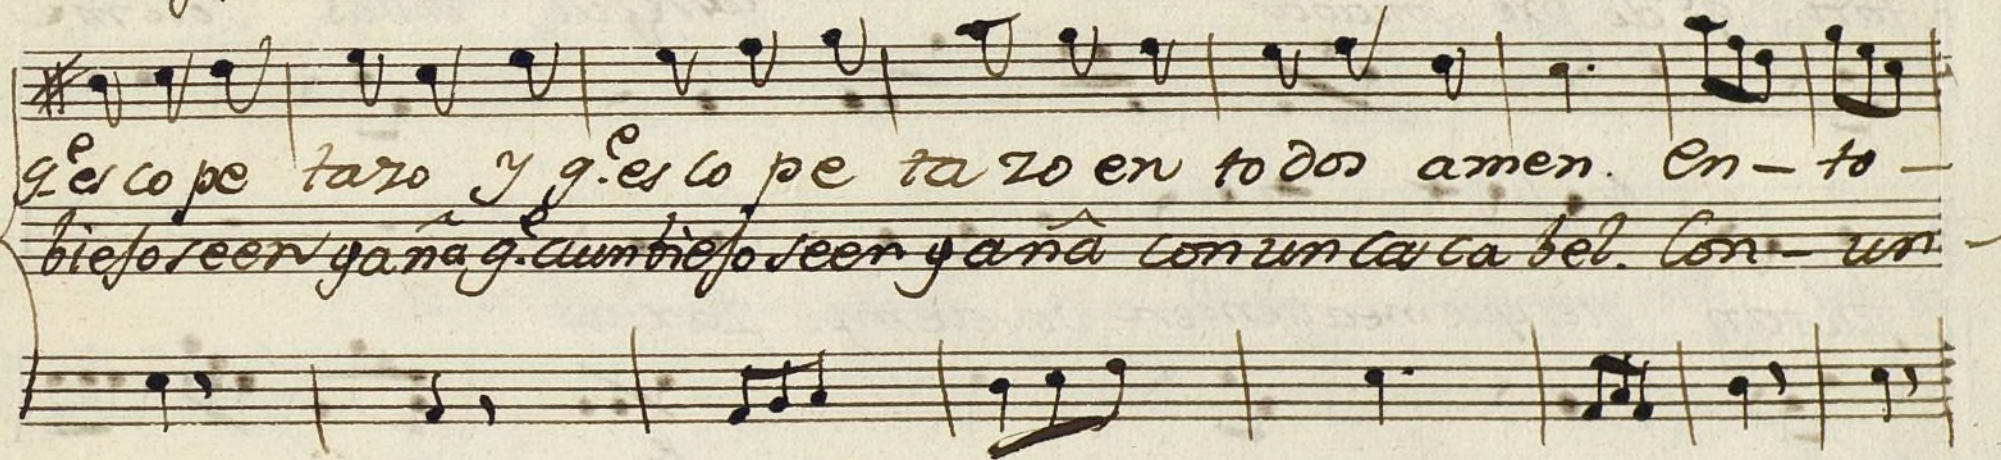 q.e es co pe tazo y q.e es co pe ta zo en to dos amen. en - to -
bieso se en gaña q.e aun bieso se en gaña con un cas ca bel. Con - un -